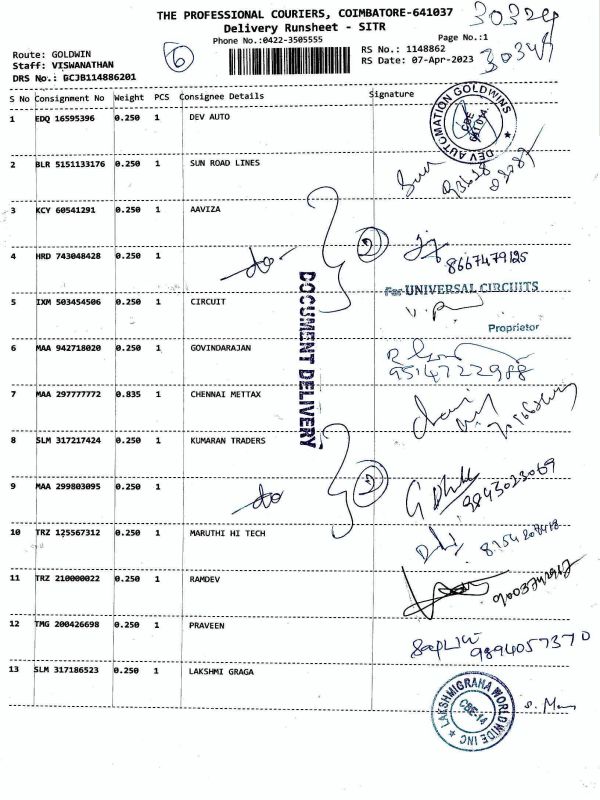 THE PROFESSIONAL COURIERS, COIMBATORE-641037
Delivery Runsheet - SITR
30324
Phone No.:0422-3505555
Page No.:1
Route: GOLDWIN
Staff: VISWANATHAN
DRS No.: BCJB114886201
6
RS No.: 1148862
RS Date: 07-Apr-2023
S No Consignment No Weight PCS Consignee Details Signature
1 EDQ 16595396 0.250 1 DEV AUTO
DEV AUTOMATION GOLDWINS
CBE
641 014
2 BLR 5151133176 0.250 1 SUN ROAD LINES
3 KCY 60541291 0.250 1 AAVIZA
4 HRD 743048428 0.250 1
do
2
8667479125
5 IXM 503454506 0.250 1 CIRCUIT
For UNIVERSAL CIRCUITS
Proprietor
DOCUMENT DELIVERY
6 MAA 942718020 0.250 1 GOVINDARAJAN
9514722988
7 MAA 297777772 0.835 1 CHENNAI METTAX
8 SLM 317217424 0.250 1 KUMARAN TRADERS
9 MAA 299803095 0.250 1
do
2
9843023069
10 TRZ 125567312 0.250 1 MARUTHI HI TECH
11 TRZ 210000022 0.250 1 RAMDEV
12 TMG 200426698 0.250 1 PRAVEEN
9894057370
13 SLM 317186523 0.250 1 LAKSHMI GRAGA
LAKSHMIGRAHA WORLDWIDE INC
CBE-14